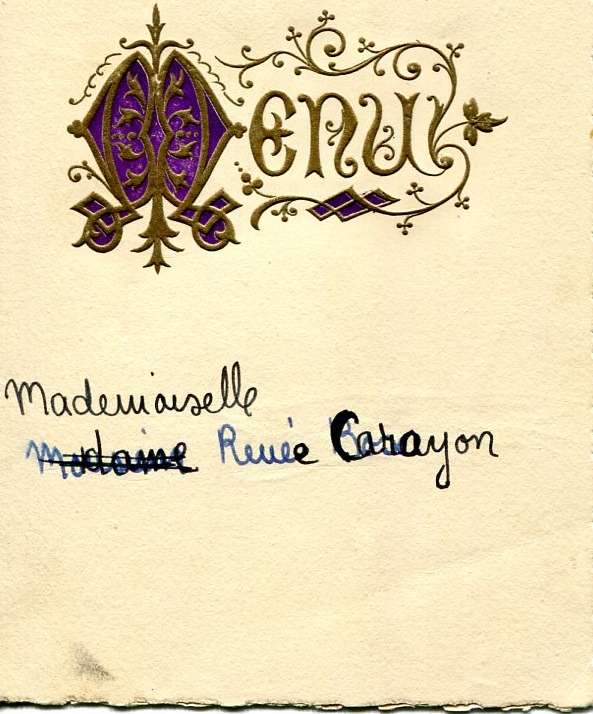 Menu
Mademoiselle
Madame Renée Carayon